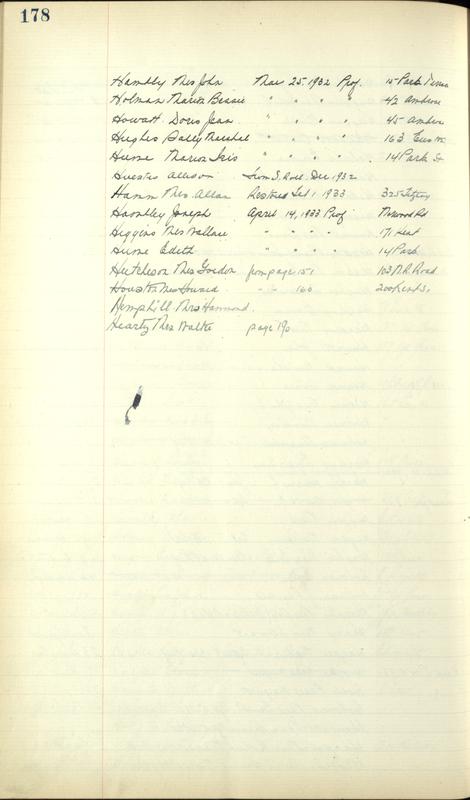 178
Hambly Mrs John Mar 25. 1932 Prof. 15 Park Terrace
Holman Marion Bessie " " " " 42 Ambrose
Howatt Doris Jean " " " " 45 Ambrose
Hughes Sally " " " " 163 Euston
Hume Marion Iris " " " " 14 Park St
Huestis Allison from S. Roll Dec 1932
Hamm Mrs. Allan Restored 1 1933 325 Fitzroy
Hambley Joseph April 14, 1933 Prof Rd
Higgins Mrs Wallace " " " " 171 Kent
Hume Edith " " " " 14 Park
Hutcheson Mrs Gordon from page 151 103 N.R. Road
Houston Mrs Howard " " 160 200 Kent St
Hemphill Mrs Hammond.
Heartz Mrs Walter page 190